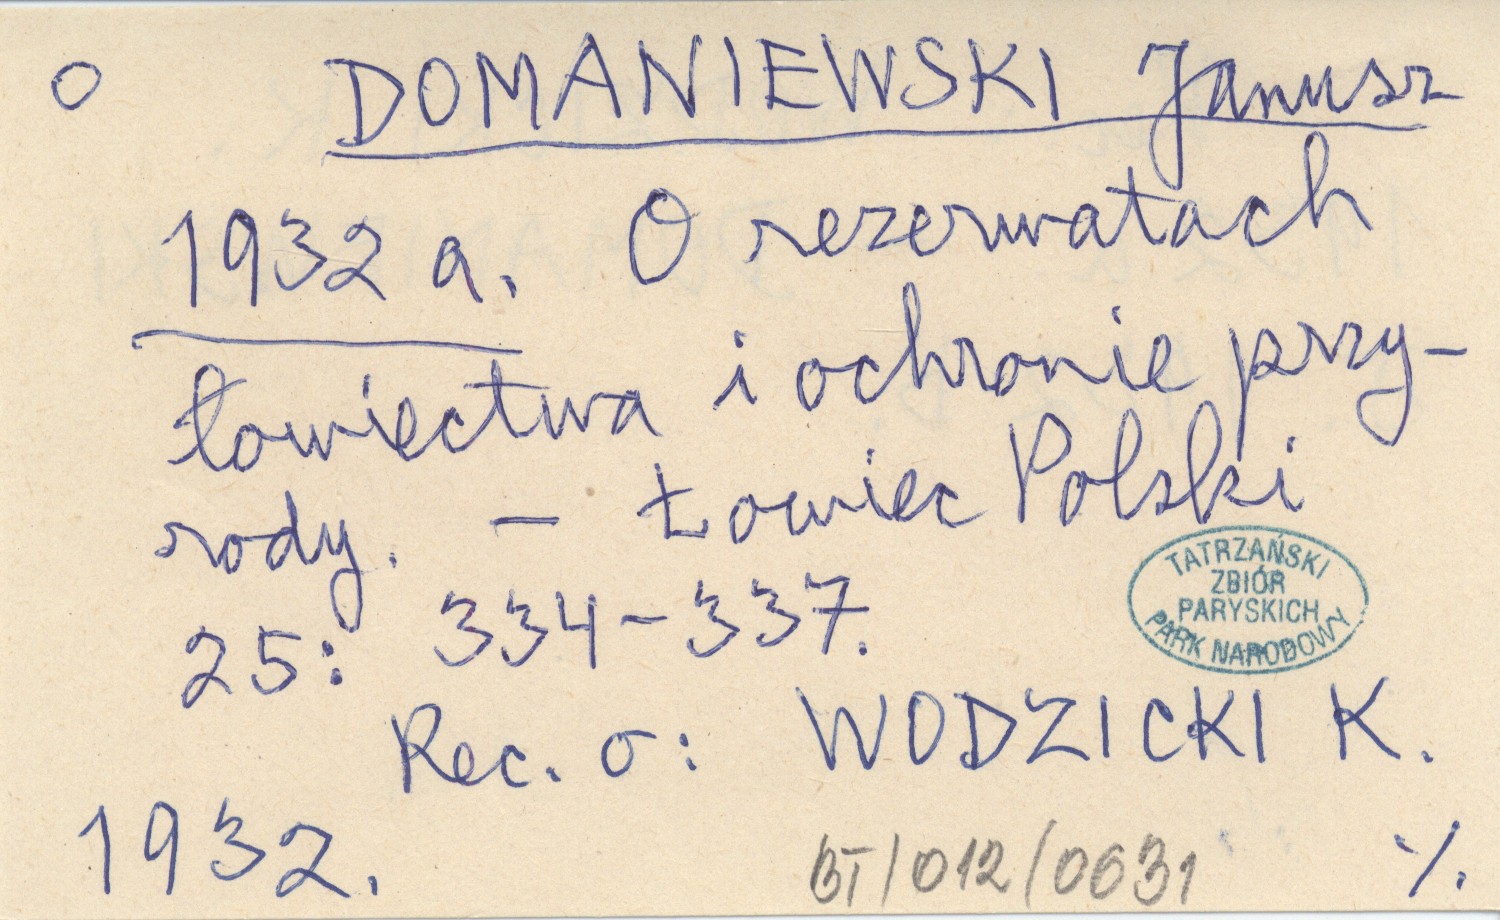 O DOMANIEWSKI Janusz
1932 a. O rezerwatach
łowiectwa i ochronie przy-
rody. – Łowiec Polski
25: 334-337.
TATRZAŃSKI
ZBIÓR
PARYSKICH
PARK NARODOWY
Rec. o: WODZICKI K.
1932.
BT/012/0631
./.